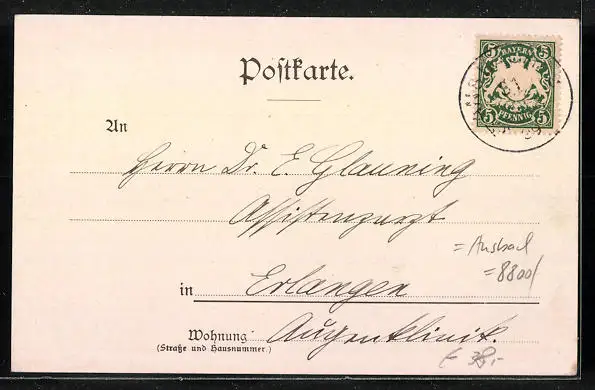 Postkarte.
BAYERN
5 5
5 5
PFENNIG
An
Herrn Dr. E. Glauning
Assistenzarzt
= Ansbach
= 8800/
in Erlangen
Wohnung Augenklinik.
(Straße und Hausnummer.)
€ 38,-